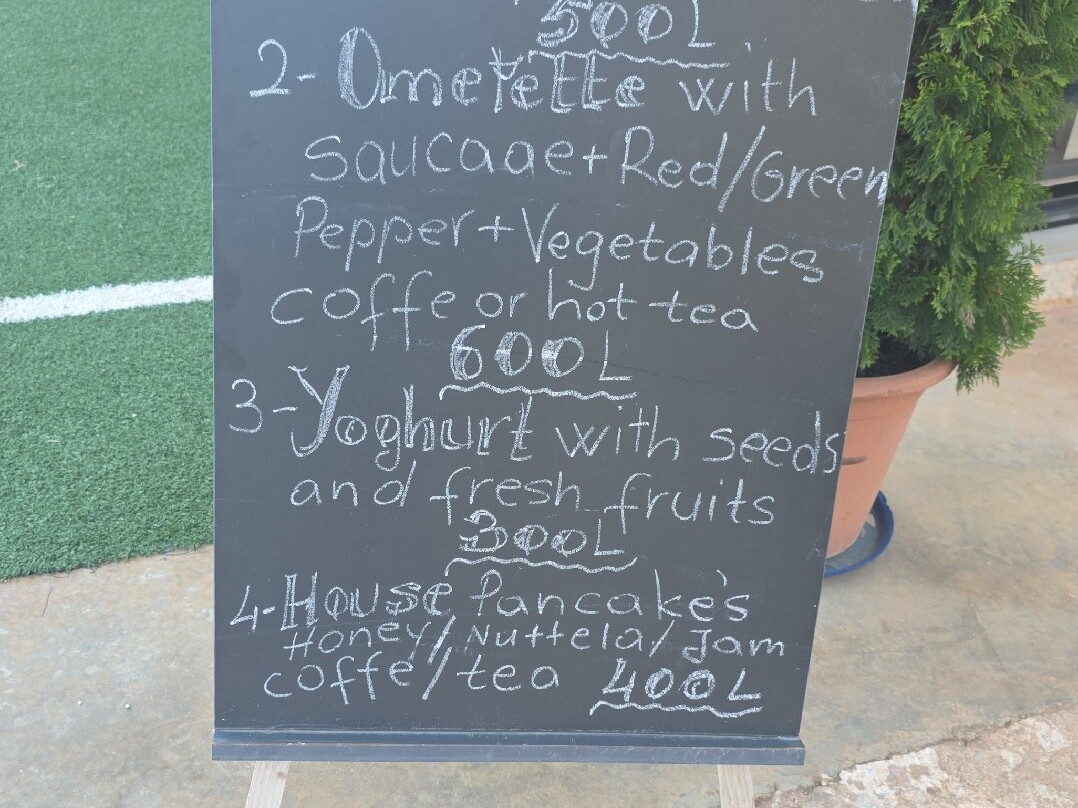 500L
2- Omelette with
saucage+Red/Green
Pepper+Vegetables
coffe or hot tea
600L
3-Yoghurt with seeds
and fresh fruits
300L
4-House Pancake's
Honey/Nuttela/Jam
coffe/tea 400L